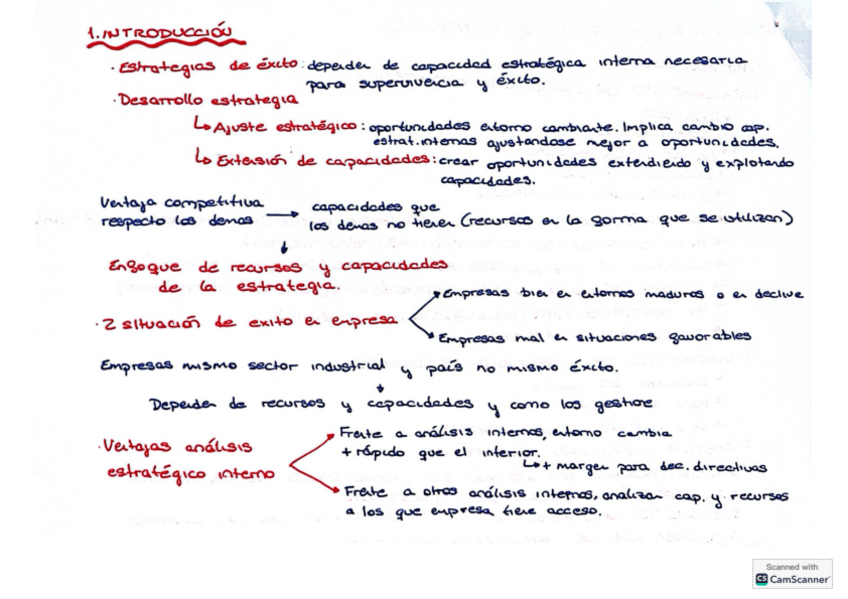 1. INTRODUCCIÓN
· Estrategias de éxito: depender de capacidad estratégica interna necesaria
para supervivencia y éxito.
· Desarrollo estrategia
↳ Ajuste estratégico: oportunidades entorno cambiante. Implica cambio cap.
estrat. internas ajustandose mejor a oportunidades.
↳ Extensión de capacidades: crear oportunidades extendiendo y explotando
capacidades.
Ventaja competitiva
respecto los demas → capacidades que
los demas no tienen (recursos en la forma que se utilizan)
↓
Enfoque de recursos y capacidades
de la estrategia.
· 2 situación de exito en empresa
Empresas bien en entornos maduros o en declive
Empresas mal en situaciones favorables
Empresas mismo sector industrial y país no mismo éxito.
↓
Depender de recursos y capacidades y como los gestione
· Ventajas análisis
estratégico interno
Frente a análisis internos, entorno cambia
+ rápido que el interior.
↳ + margen para dec. directivas
Frente a otros análisis internos, analizan cap. y recursos
a los que empresa tiene acceso.
Scanned with
CS CamScanner